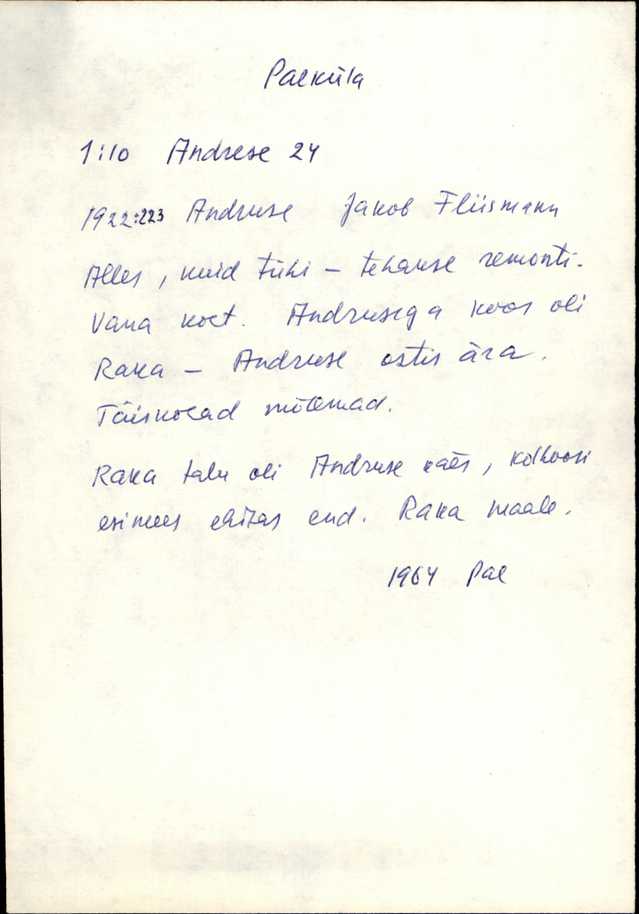 Paeküla
1:10 Andrese 24
1922:223 Andruse Jakob Fliismann
Alles, kuid tühi – tehakse remonti.
Vana koht. Andrusega koos oli
Raka – Andruse ostis ära.
Täiskohad mõlemad.
Raka talu oli Andruse käes, kolhoosi
esimees ehitas end. Raka maale.
1964 Pae